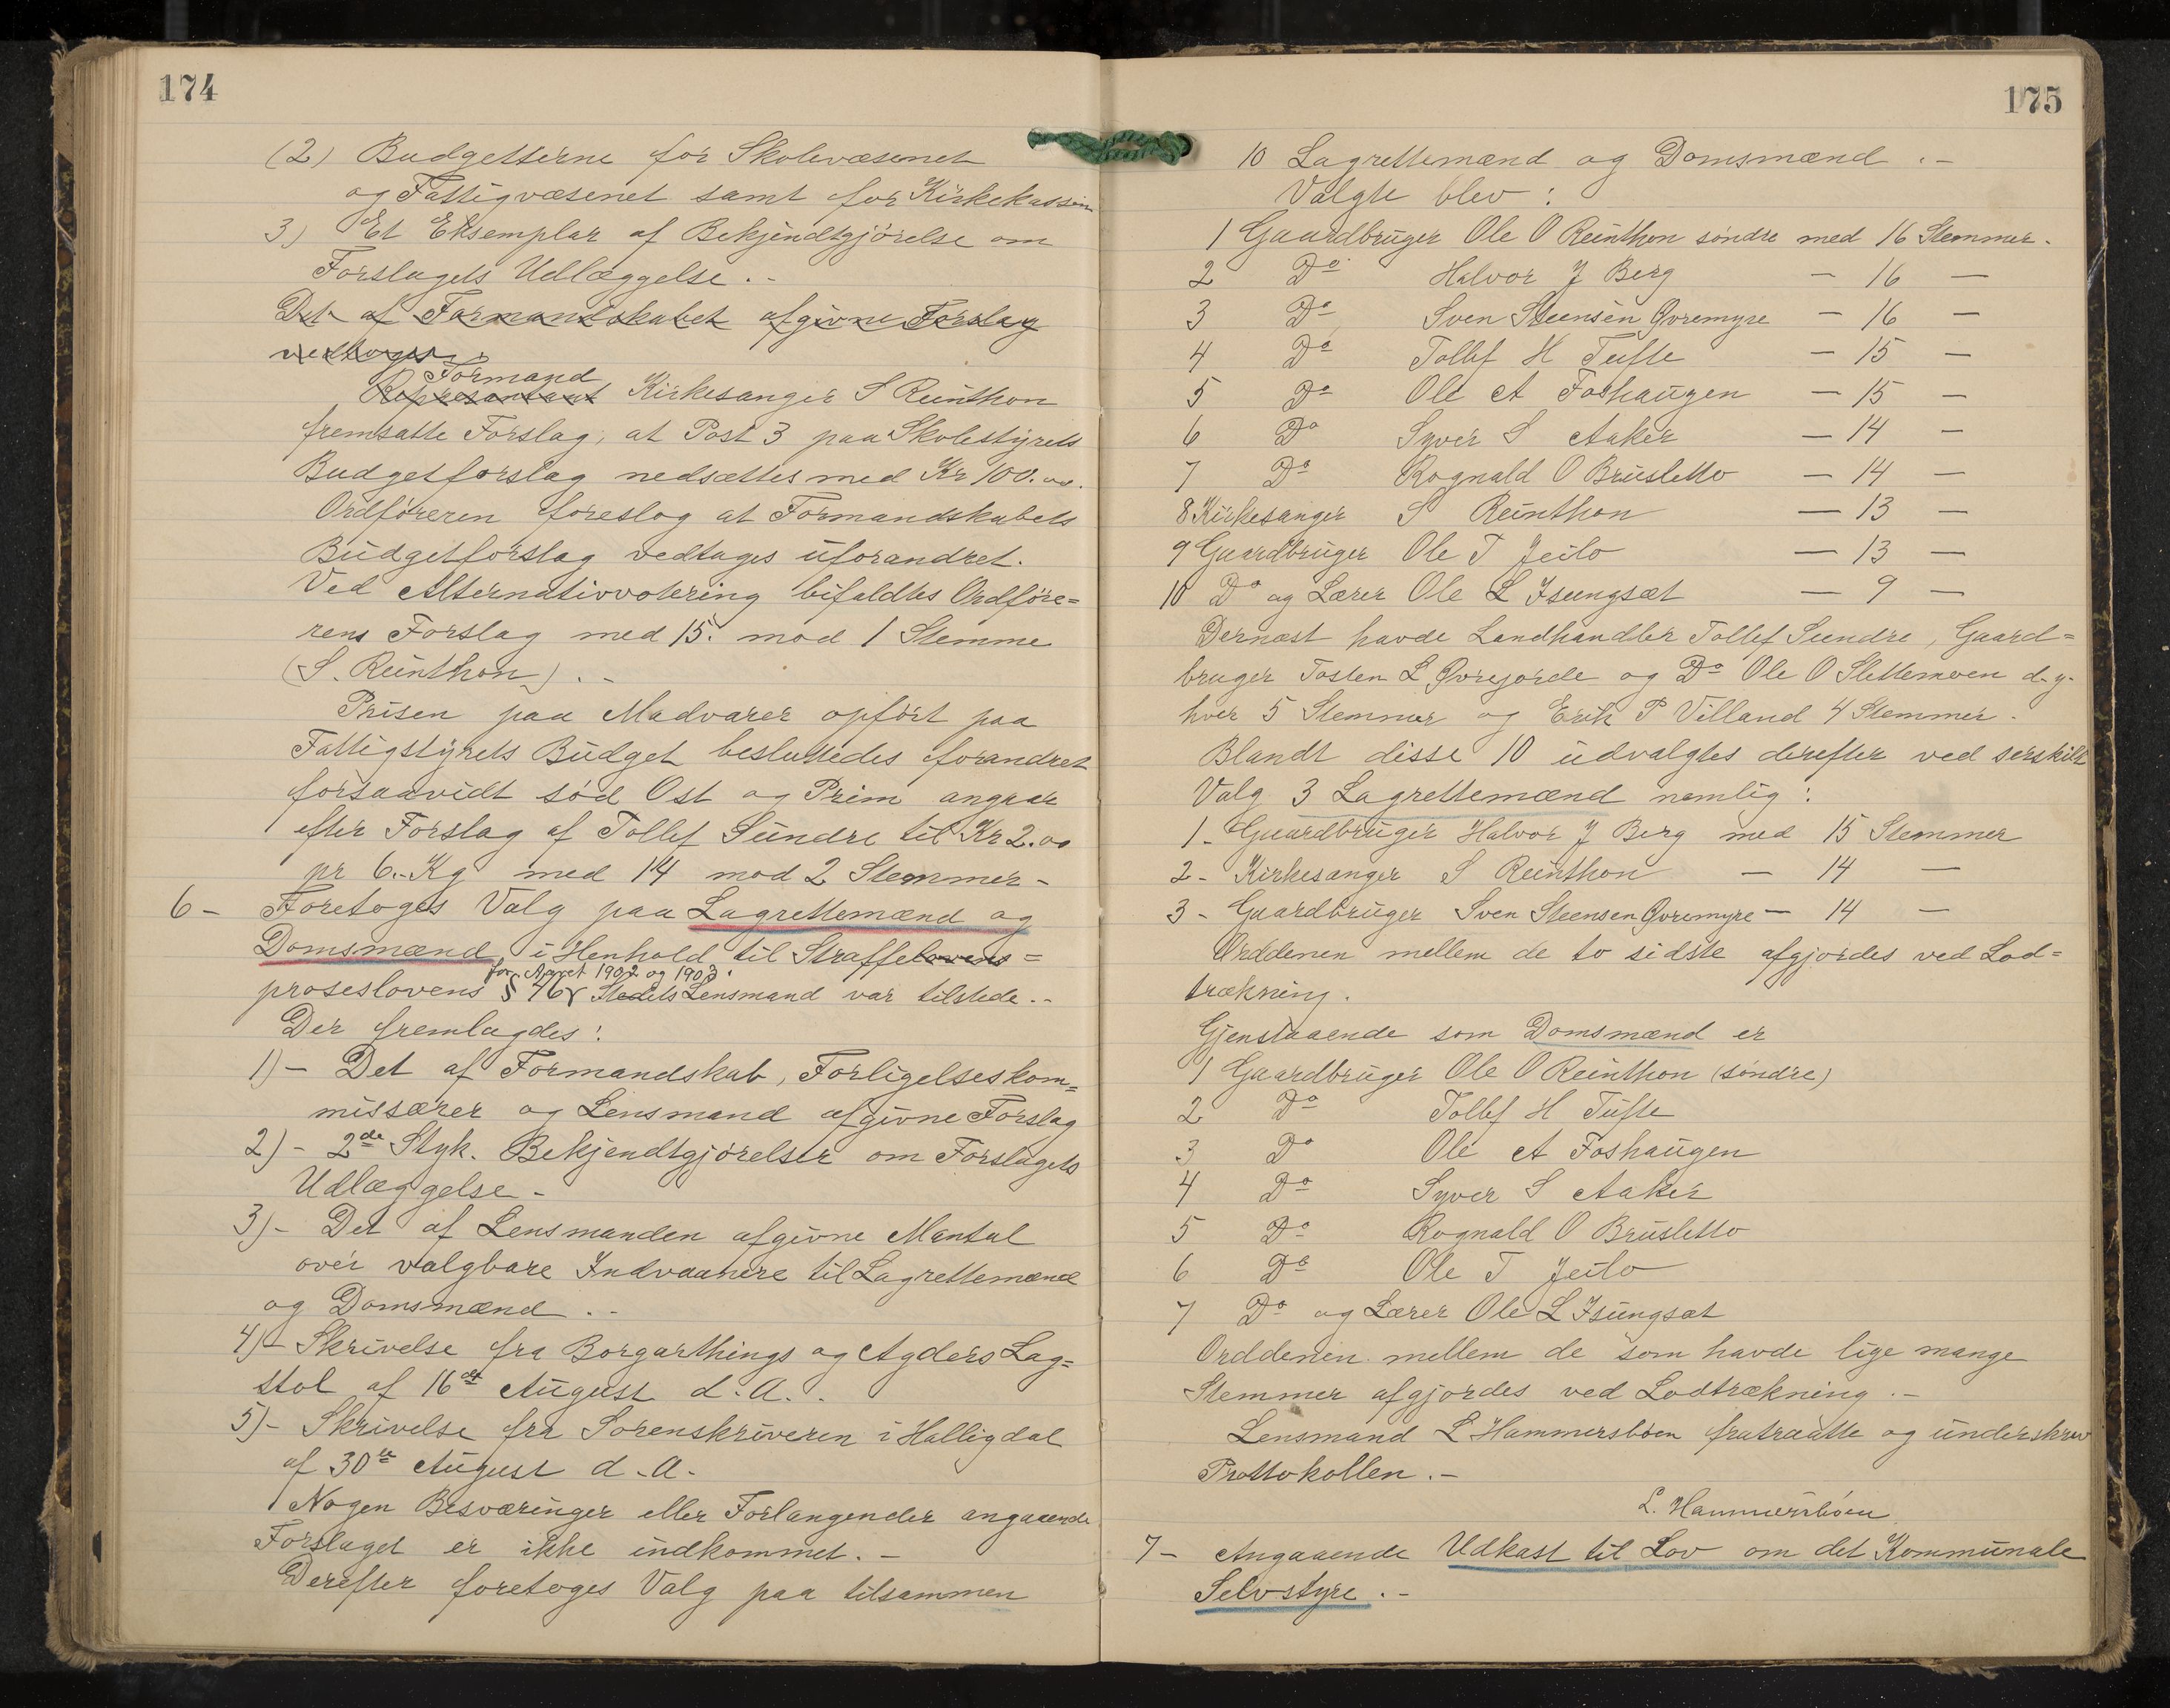 174
(2) Budgetterne for Skolevæsenet
og Fattigvæsenet samt for Kirkekassen
3) Et Eksemplar af Bekjendtgjörelse om
Forslagets Udlæggelse.-
Det af Formandskabet afgivne Forslag
vedtoges.
Formand
Represantant Kirkesanger S Reinthon
fremsatte Forslag, at Post 3 paa Skolestyrets
Budgetforslag nedsættes med Kr 100.oo.
Ordföreren foreslog at Formandskabets
Budgetforslag vedtages uforandret.
Ved Alternativvotering bifaldtes Ordföre=
rens Forslag med 15. mod 1 Stemme
(S. Reinthon).-
Prisen paa Madvarer opfört paa
Fattigstyrets Budget besluttedes forandret
forsaavidt söd Ost og Prim angaar
efter Forslag af Tollef Sundre til Kr 2.oo
pr 6.-Kg med 14 mod 2 Stemmer-
6- Foretoges Valg paa Lagrettemænd og
Domsmænd, i Henhold til Straffelovens=
for Aaret 1902 og 1903.
proseslovens § 46 Stedets Lensmand var tilstede.-
Der fremlagdes:
1)- Det af Formandskab, Forligelseskom=
missærer og Lensmand afgivne Forslag
2)- 2de Styk. Bekjendtgjörelser om Forslagets
Udlæggelse-
3)- Det af Lensmanden afgivne Mantal
over valgbare Indvaanere til Lagrettemænd
og Domsmænd.-
4)- Skrivelse fra Borgarthings og Agders Lag=
stol af 16de August d.A.
5)- Skrivelse fra Sorenskriveren i Halligdal
af 30te August d.A.
Nogen Besværinger eller Forlangender angaaende
Forslaget er ikke indkommet.-
Derefter foretoges Valg paa tilsammen
175
10 Lagrettemænd og Domsmænd.-
Valgte blev:
1 Gaardbruger Ole O Reinthon söndre med 16 Stemmer.
2 Do Halvor J Berg - 16 -
3 Do Sven Steensen Øvremyre - 16 -
4 Do Tollef H Tufte - 15 -
5 Do Ole A Foshaugen - 15 -
6 Do Syver S Aaker - 14 -
7 Do Rognald O Brusletto - 14 -
8 Kirkesanger S Reinthon - 13 -
9 Gaardbruger Ole T Jeilo - 13 -
10 Do og Lærer Ole L Isungsæt - 9 -
Dernæst havde Landhandler Tollef Sundre, Gaard=
bruger Tosten L Øvrejorde og Do Ole O Slettemoen d.y.
hver 5 Stemmer og Erik P Villand 4 Stemmer.
Blandt disse 10 udvalgtes derefter ved serskilt
Valg 3 Lagrettemænd nemlig:
1- Gaardbruger Halvor J Berg med 15 Stemmer
2- Kirkesanger S Reinthon - 14 -
3- Gaardbruger Sven Steensen Øvremyre - 14 -
Orddenen mellem de to sidste afgjordes ved Lod=
trækning.
Gjenstaaende som Domsmænd er
1 Gaardbruger Ole O Reinthon (söndre)
2 Do Tollef H Tufte
3 Do Ole A Foshaugen
4 Do Syver S Aaker
5 Do Rognald O Brusletto
6 Do Ole T Jeilo
7 Do og Lærer Ole L Isungsæt
Orddenen mellem de som havde lige mange
Stemmer afgjordes ved Lodtrækning.-
Lensmand L Hammersböen fratraatte og underskrev
Prottokollen.-
L. Hammersböen
7- Angaaende Udkast til Lov om det Kommunale
Selvstyre.-